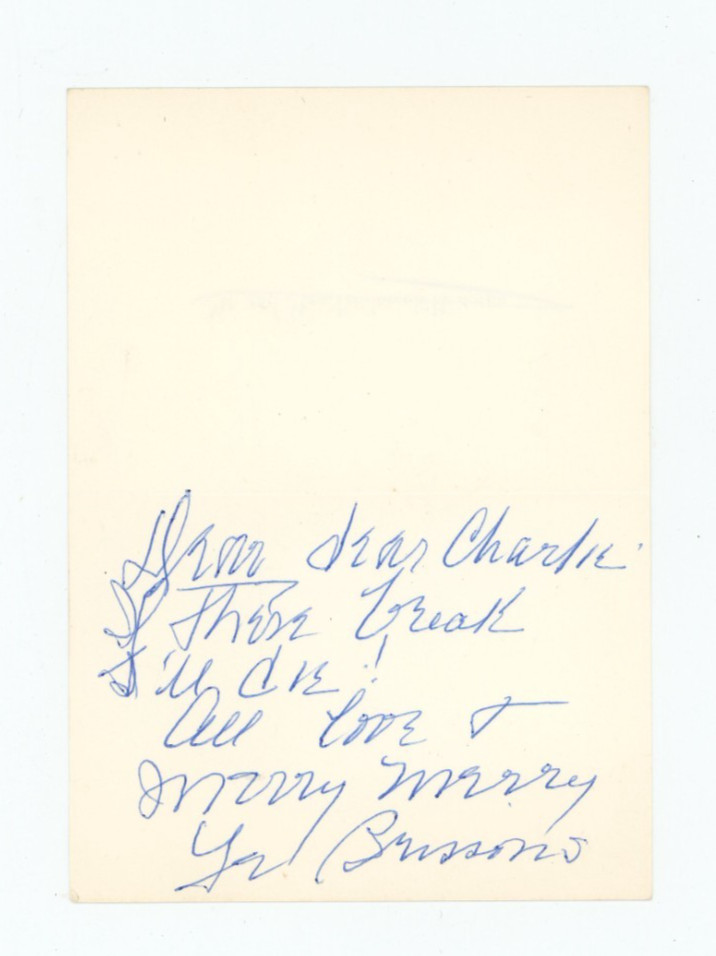 Dear dear Charlie.
If these break
I'll die!
All love &
Merry Merry
Brissons